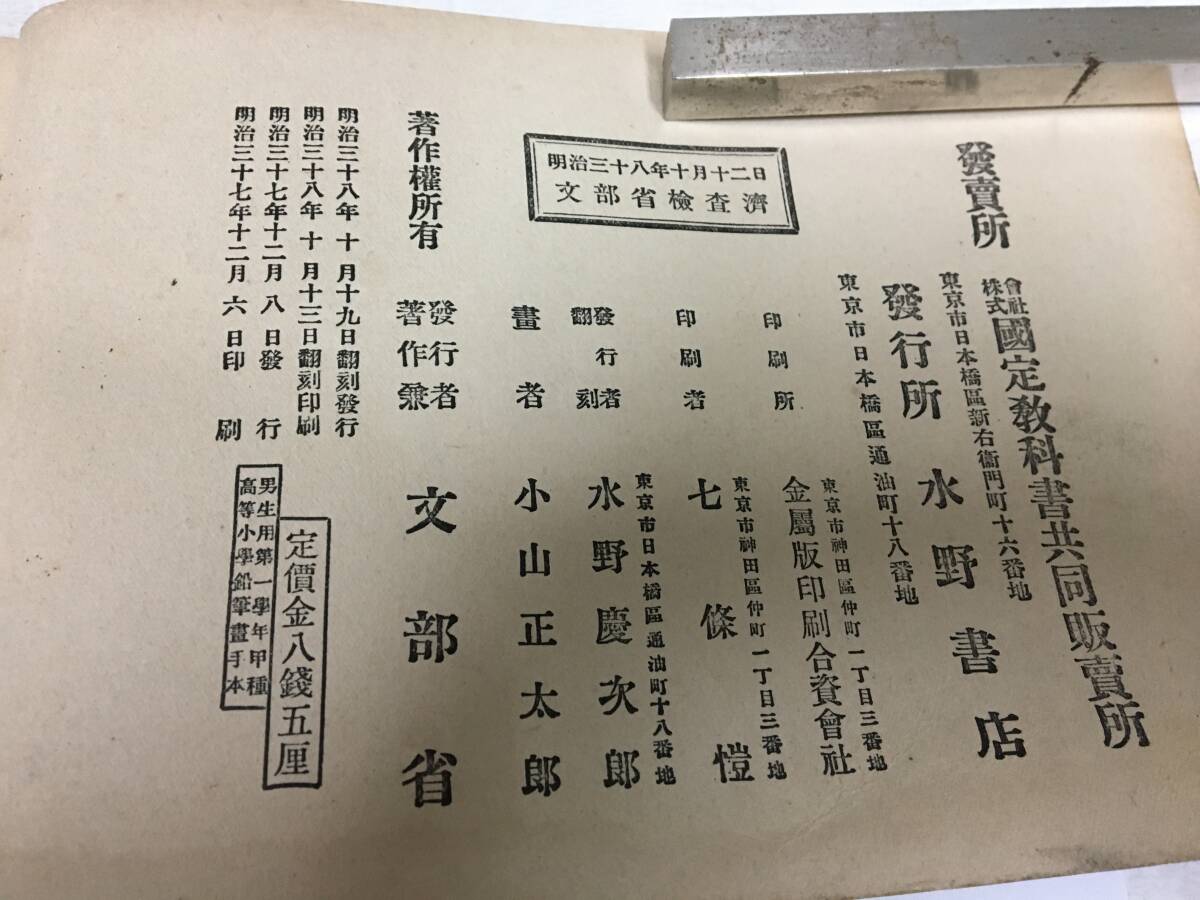 明治三十七年十二月六日印刷
明治三十七年十二月八日發行
明治三十八年十月十三日翻刻印刷
明治三十八年十月十九日翻刻發行
高等小學鉛筆畫手本
男生用第一學年甲種
定價金八錢五厘
著作權所有
著作兼
發行者
文部省
畫者 小山正太郎
翻刻
發行者
水野慶次郎
東京市日本橋區通油町十八番地
印刷者 七條愷
東京市神田區仲町一丁目三番地
印刷所 金屬版印刷合資會社
東京市神田區仲町一丁目三番地
明治三十八年十月十二日
文部省檢査濟
東京市日本橋區通油町十八番地
發行所 水野書店
東京市日本橋區新右衞門町十六番地
發賣所
株式
會社
國定教科書共同販賣所